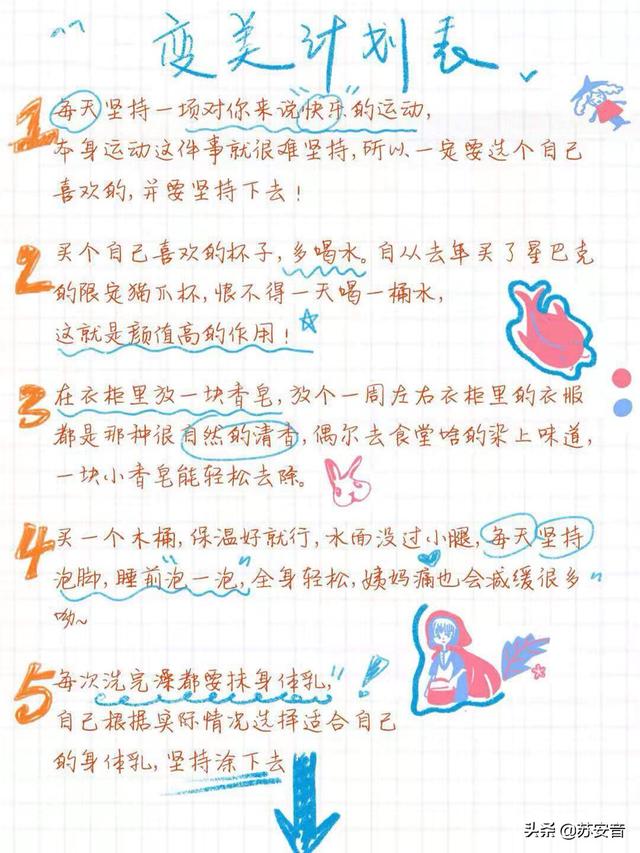 变美计划表
1 每天坚持一项对你来说"快乐"的运动,
本身运动这件事就很难坚持,所以一定要选个自己
喜欢的,并要坚持下去!
2 买个自己喜欢的杯子,多喝水。自从去年买了星巴克
的限定猫爪杯,恨不得一天喝一桶水,
这就是颜值高的作用!
3 在衣柜里放一块香皂,放个一周左右衣柜里的衣服
都是那种很自然的清香,偶尔去食堂啥的染上味道,
一块小香皂能轻松去除。
4 买一个木桶,保温好就行,水面没过小腿,每天坚持
泡脚,睡前"泡一泡",全身轻松,姨妈痛也会减缓很多
呦~
5 每次洗完澡都要抹身体乳,
自己根据实际情况选择适合自己
的身体乳,坚持涂下去
头条@苏安音